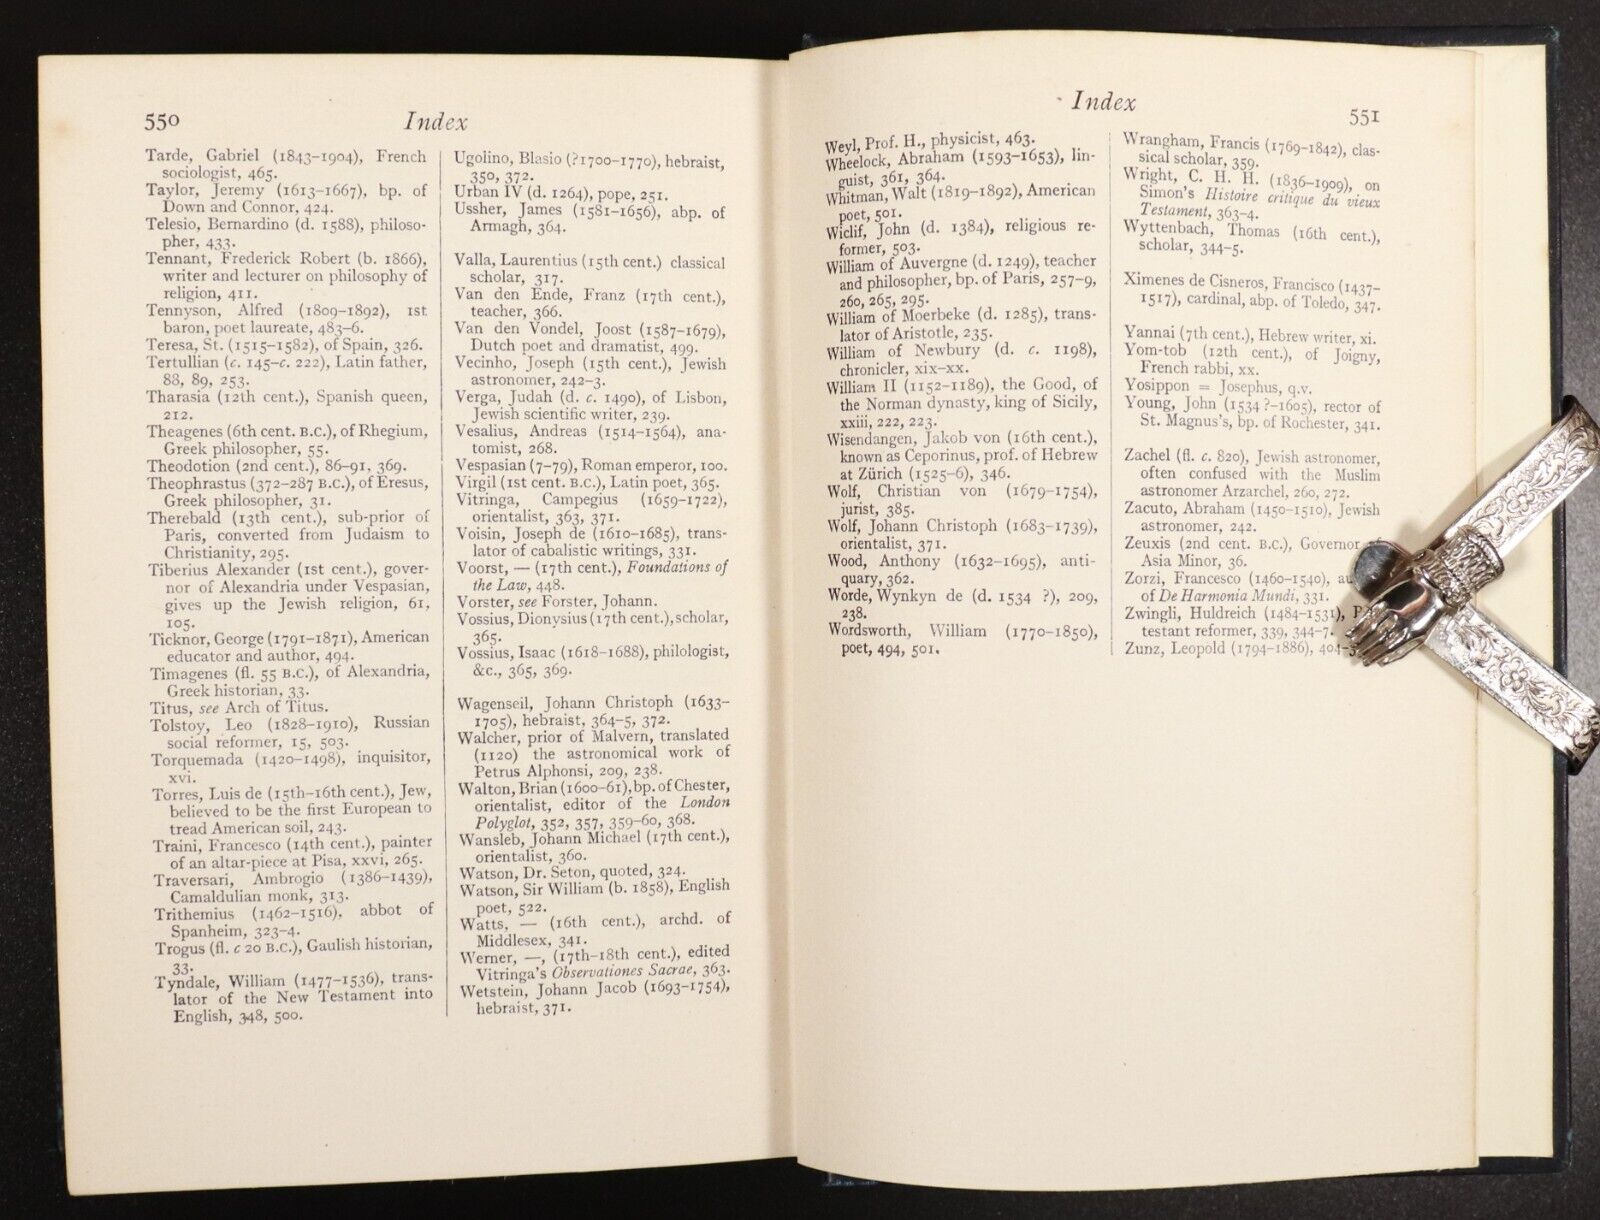 550
Index
Tarde, Gabriel (1843–1904), French
sociologist, 465.
Taylor, Jeremy (1613–1667), bp. of
Down and Connor, 424.
Telesio, Bernardino (d. 1588), philoso-
pher, 433.
Tennant, Frederick Robert (b. 1866),
writer and lecturer on philosophy of
religion, 411.
Tennyson, Alfred (1809–1892), 1st
baron, poet laureate, 483–6.
Teresa, St. (1515–1582), of Spain, 326.
Tertullian (c. 145–c. 222), Latin father,
88, 89, 253.
Tharasia (12th cent.), Spanish queen,
212.
Theagenes (6th cent. B.C.), of Rhegium,
Greek philosopher, 55.
Theodotion (2nd cent.), 86–91, 369.
Theophrastus (372–287 B.C.), of Eresus,
Greek philosopher, 31.
Therebald (13th cent.), sub-prior of
Paris, converted from Judaism to
Christianity, 295.
Tiberius Alexander (1st cent.), gover-
nor of Alexandria under Vespasian,
gives up the Jewish religion, 61,
105.
Ticknor, George (1791–1871), American
educator and author, 494.
Timagenes (fl. 55 B.C.), of Alexandria,
Greek historian, 33.
Titus, see Arch of Titus.
Tolstoy, Leo (1828–1910), Russian
social reformer, 15, 503.
Torquemada (1420–1498), inquisitor,
xvi.
Torres, Luis de (15th–16th cent.), Jew,
believed to be the first European to
tread American soil, 243.
Traini, Francesco (14th cent.), painter
of an altar-piece at Pisa, xxvi, 265.
Traversari, Ambrogio (1386–1439),
Camaldulian monk, 313.
Trithemius (1462–1516), abbot of
Spanheim, 323–4.
Trogus (fl. c 20 B.C.), Gaulish historian,
33.
Tyndale, William (1477–1536), trans-
lator of the New Testament into
English, 348, 500.
Ugolino, Blasio (?1700–1770), hebraist,
350, 372.
Urban IV (d. 1264), pope, 251.
Ussher, James (1581–1656), abp. of
Armagh, 364.
Valla, Laurentius (15th cent.) classical
scholar, 317.
Van den Ende, Franz (17th cent.),
teacher, 366.
Van den Vondel, Joost (1587–1679),
Dutch poet and dramatist, 499.
Vecinho, Joseph (15th cent.), Jewish
astronomer, 242–3.
Verga, Judah (d. c. 1490), of Lisbon,
Jewish scientific writer, 239.
Vesalius, Andreas (1514–1564), ana-
tomist, 268.
Vespasian (7–79), Roman emperor, 100.
Virgil (1st cent. B.C.), Latin poet, 365.
Vitringa, Campegius (1659–1722),
orientalist, 363, 371.
Voisin, Joseph de (1610–1685), trans-
lator of cabalistic writings, 331.
Voorst, — (17th cent.), Foundations of
the Law, 448.
Vorster, see Forster, Johann.
Vossius, Dionysius (17th cent.), scholar,
365.
Vossius, Isaac (1618–1688), philologist,
&c., 365, 369.
Wagenseil, Johann Christoph (1633–
1705), hebraist, 364–5, 372.
Walcher, prior of Malvern, translated
(1120) the astronomical work of
Petrus Alphonsi, 209, 238.
Walton, Brian (1600–61), bp. of Chester,
orientalist, editor of the London
Polyglot, 352, 357, 359–60, 368.
Wansleb, Johann Michael (17th cent.),
orientalist, 360.
Watson, Dr. Seton, quoted, 324.
Watson, Sir William (b. 1858), English
poet, 522.
Watts, — (16th cent.), archd. of
Middlesex, 341.
Werner, —, (17th–18th cent.), edited
Vitringa's Observationes Sacrae, 363.
Wetstein, Johann Jacob (1693–1754),
hebraist, 371.
Index
551
Weyl, Prof. H., physicist, 463.
Wheelock, Abraham (1593–1653), lin-
guist, 361, 364.
Whitman, Walt (1819–1892), American
poet, 501.
Wiclif, John (d. 1384), religious re-
former, 503.
William of Auvergne (d. 1249), teacher
and philosopher, bp. of Paris, 257–9,
260, 265, 295.
William of Moerbeke (d. 1285), trans-
lator of Aristotle, 235.
William of Newbury (d. c. 1198),
chronicler, xix–xx.
William II (1152–1189), the Good, of
the Norman dynasty, king of Sicily,
xxiii, 222, 223.
Wisendangen, Jakob von (16th cent.),
known as Ceporinus, prof. of Hebrew
at Zürich (1525–6), 346.
Wolf, Christian von (1679–1754),
jurist, 385.
Wolf, Johann Christoph (1683–1739),
orientalist, 371.
Wood, Anthony (1632–1695), anti-
quary, 362.
Worde, Wynkyn de (d. 1534 ?), 209,
238.
Wordsworth, William (1770–1850),
poet, 494, 501.
Wrangham, Francis (1769–1842), clas-
sical scholar, 359.
Wright, C. H. H. (1836–1909), on
Simon's Histoire critique du vieux
Testament, 363–4.
Wyttenbach, Thomas (16th cent.),
scholar, 344–5.
Ximenes de Cisneros, Francisco (1437–
1517), cardinal, abp. of Toledo, 347.
Yannai (7th cent.), Hebrew writer, xi.
Yom-tob (12th cent.), of Joigny,
French rabbi, xx.
Yosippon = Josephus, q.v.
Young, John (1534 ?–1605), rector of
St. Magnus's, bp. of Rochester, 341.
Zachel (fl. c. 820), Jewish astronomer,
often confused with the Muslim
astronomer Arzarchel, 260, 272.
Zacuto, Abraham (1450–1510), Jewish
astronomer, 242.
Zeuxis (2nd cent. B.C.), Governor
Asia Minor, 36.
Zorzi, Francesco (1460–1540),
of De Harmonia Mundi, 331.
Zwingli, Huldreich (1484–1531),
testant reformer, 339, 344–7.
Zunz, Leopold (1794–1886),